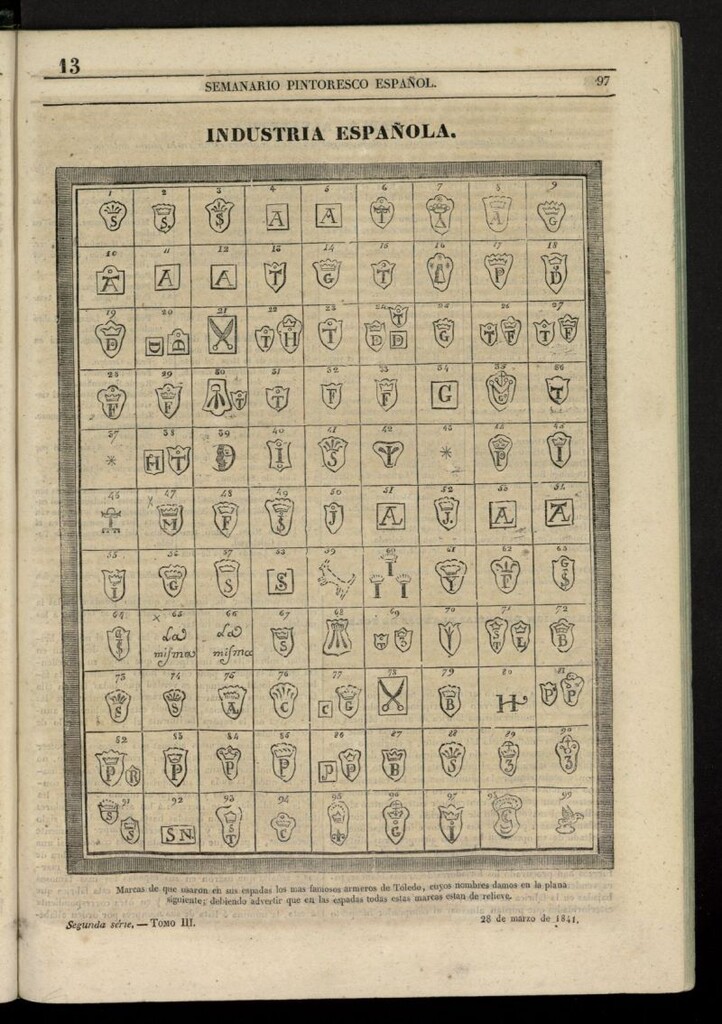 13
SEMANARIO PINTORESCO ESPAÑOL. 97
INDUSTRIA ESPAÑOLA.
1 2 3 4 5 6 7 8 9
S S. S A A T A A G
10 11 12 13 14 15 16 17 18
A A A T G T L P D
19 20 21 22 23 24 25 26 27
D D D T H T T D D G T F T F
28 29 30 31 32 33 34 35 36
F F T T F F G T
37 38 39 40 41 42 43 44 45
* H T D I S Y * P I
46 47 48 49 50 51 52 53 54
M F S J A J. A A
55 56 57 58 59 60 61 62 63
I G S S Y F G S
64 65 66 67 68 69 70 71 72
G S La misma La misma S T S S T L B
73 74 75 76 77 78 79 80 81
S S A C C G B H P P
82 83 84 85 86 87 88 89 90
P R P P P P P B S 3 3
91 92 93 94 95 96 97 98 99
S S S N S T C G I C
Marcas de que usaron en sus espadas los mas famosos armeros de Toledo, cuyos nombres damos en la plana
siguiente; debiendo advertir que en las espadas todas estas marcas estan de relieve.
Segunda série. — TOMO III. 28 de marzo de 1841.